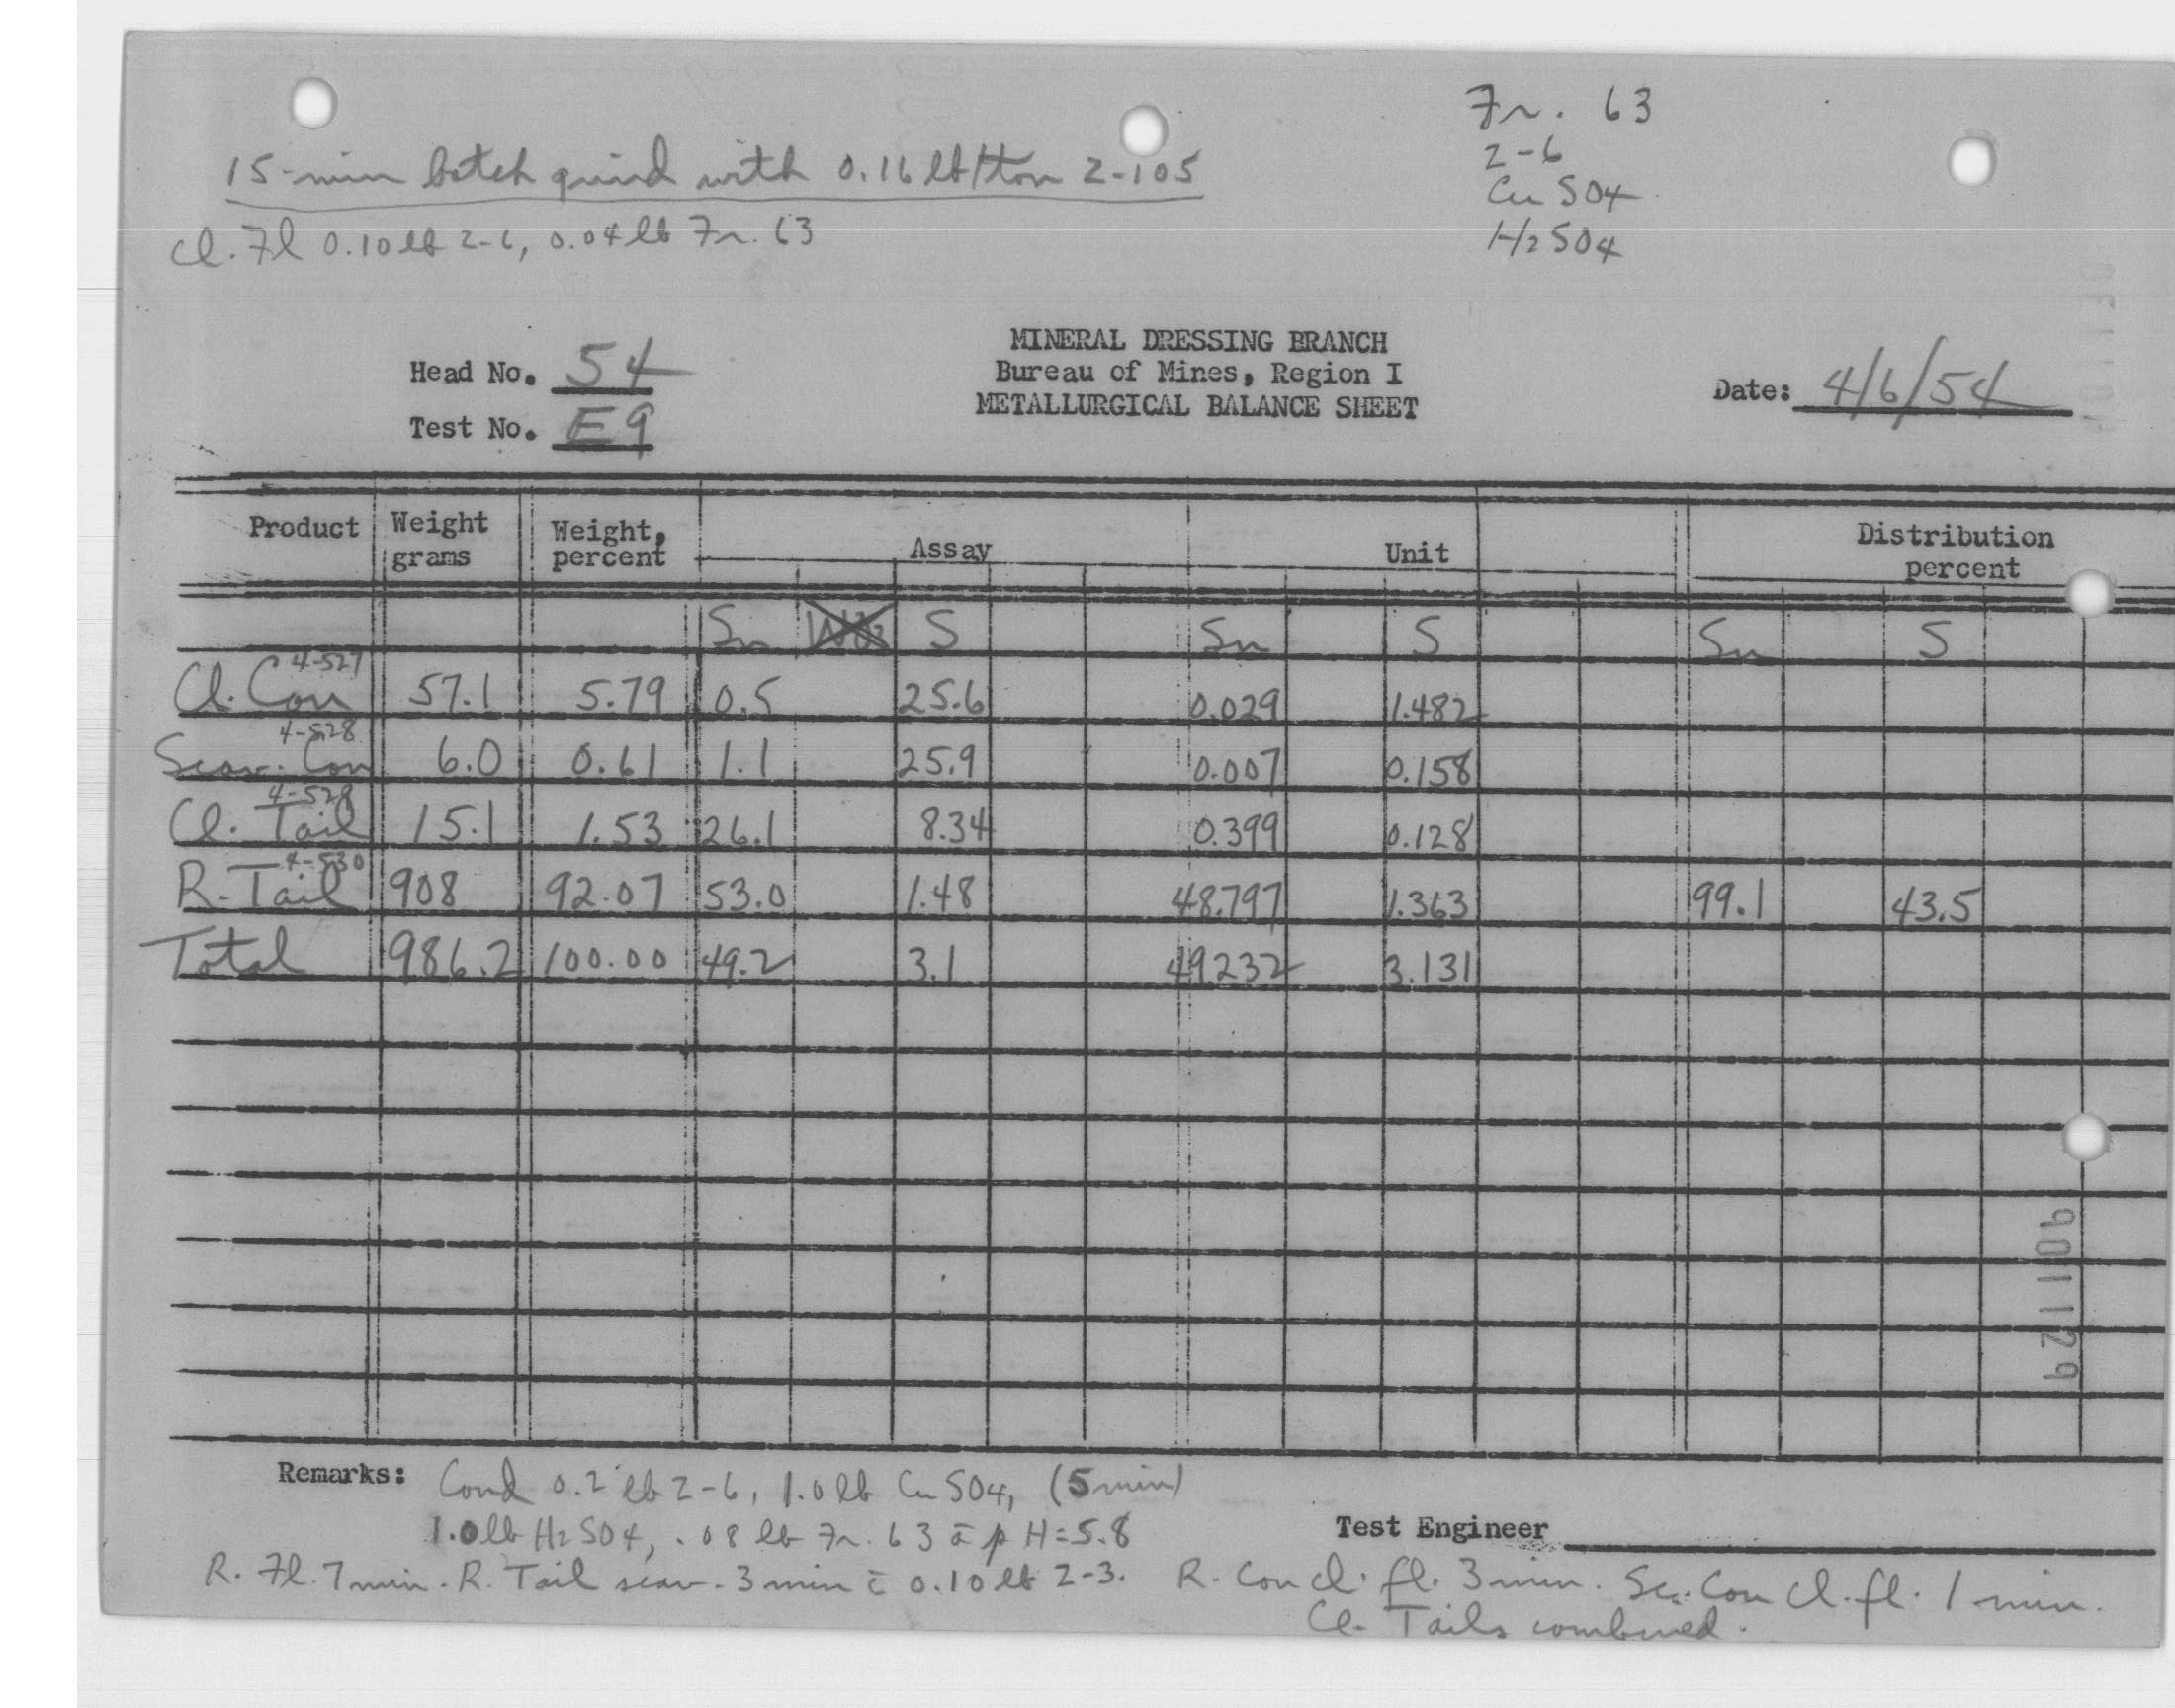 Fr. 63
2-6
CuSO4
H2SO4
15-min batch grind with 0.16 lb/ton Z-105
Cl. Fl 0.10 lb Z-6, 0.04 lb Fr. 63
MINERAL DRESSING BRANCH
Bureau of Mines, Region I
METALLURGICAL BALANCE SHEET
Head No. 54
Test No. E9
Date: 4/6/54
Product Weight grams Weight, percent Assay Unit Distribution percent
Sn WO3 S Sn S Sn S
Cl. Con 4-527 57.1 5.79 0.5 25.6 0.029 1.482
Scav. Con 4-528 6.0 0.61 1.1 25.9 0.007 0.158
Cl. Tail 4-529 15.1 1.53 26.1 8.34 0.399 0.128
R. Tail 4-530 908 92.07 53.0 1.48 48.797 1.363 99.1 43.5
Total 986.2 100.00 49.2 3.1 49.232 3.131
901129
Remarks: Cond 0.2 lb Z-6, 1.0 lb CuSO4, (5 min)
1.0 lb H2SO4, .08 lb Fr. 63 a pH=5.8
Test Engineer
R. Fl. 7 min. R. Tail scav. 3 min c̄ 0.10 lb Z-3. R. Con cl. fl. 3 min. Sc. Con cl. fl. 1 min.
Cl. Tails combined.